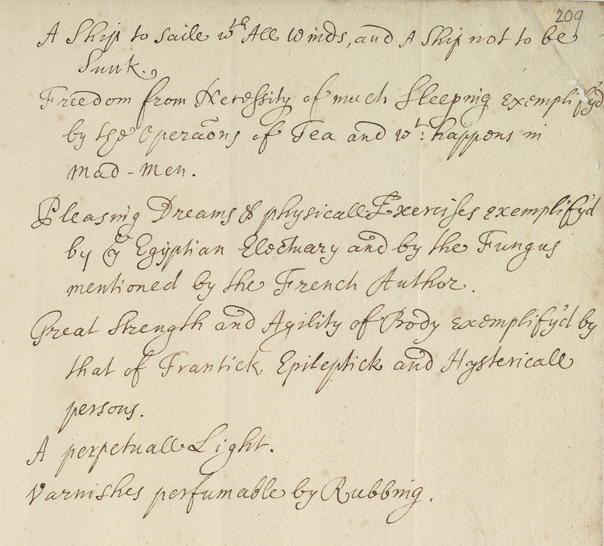 209
A Ship to saile wth All Winds, and A Ship not to be
Sunk.
Freedom from Necessity of much Sleeping exemplify'd
by the Operaōns of Tea and wt. happens in
Mad-Men.
Pleasing Dreams & physicall Exercises exemplify'd
by ye Egyptian Electuary and by the Fungus
mentioned by the French Author.
Great Strength and Agility of Body exemplify'd by
that of Frantick Epileptick and Hystericall
persons.
A perpetuall Light.
Varnishes perfumable by Rubbing.